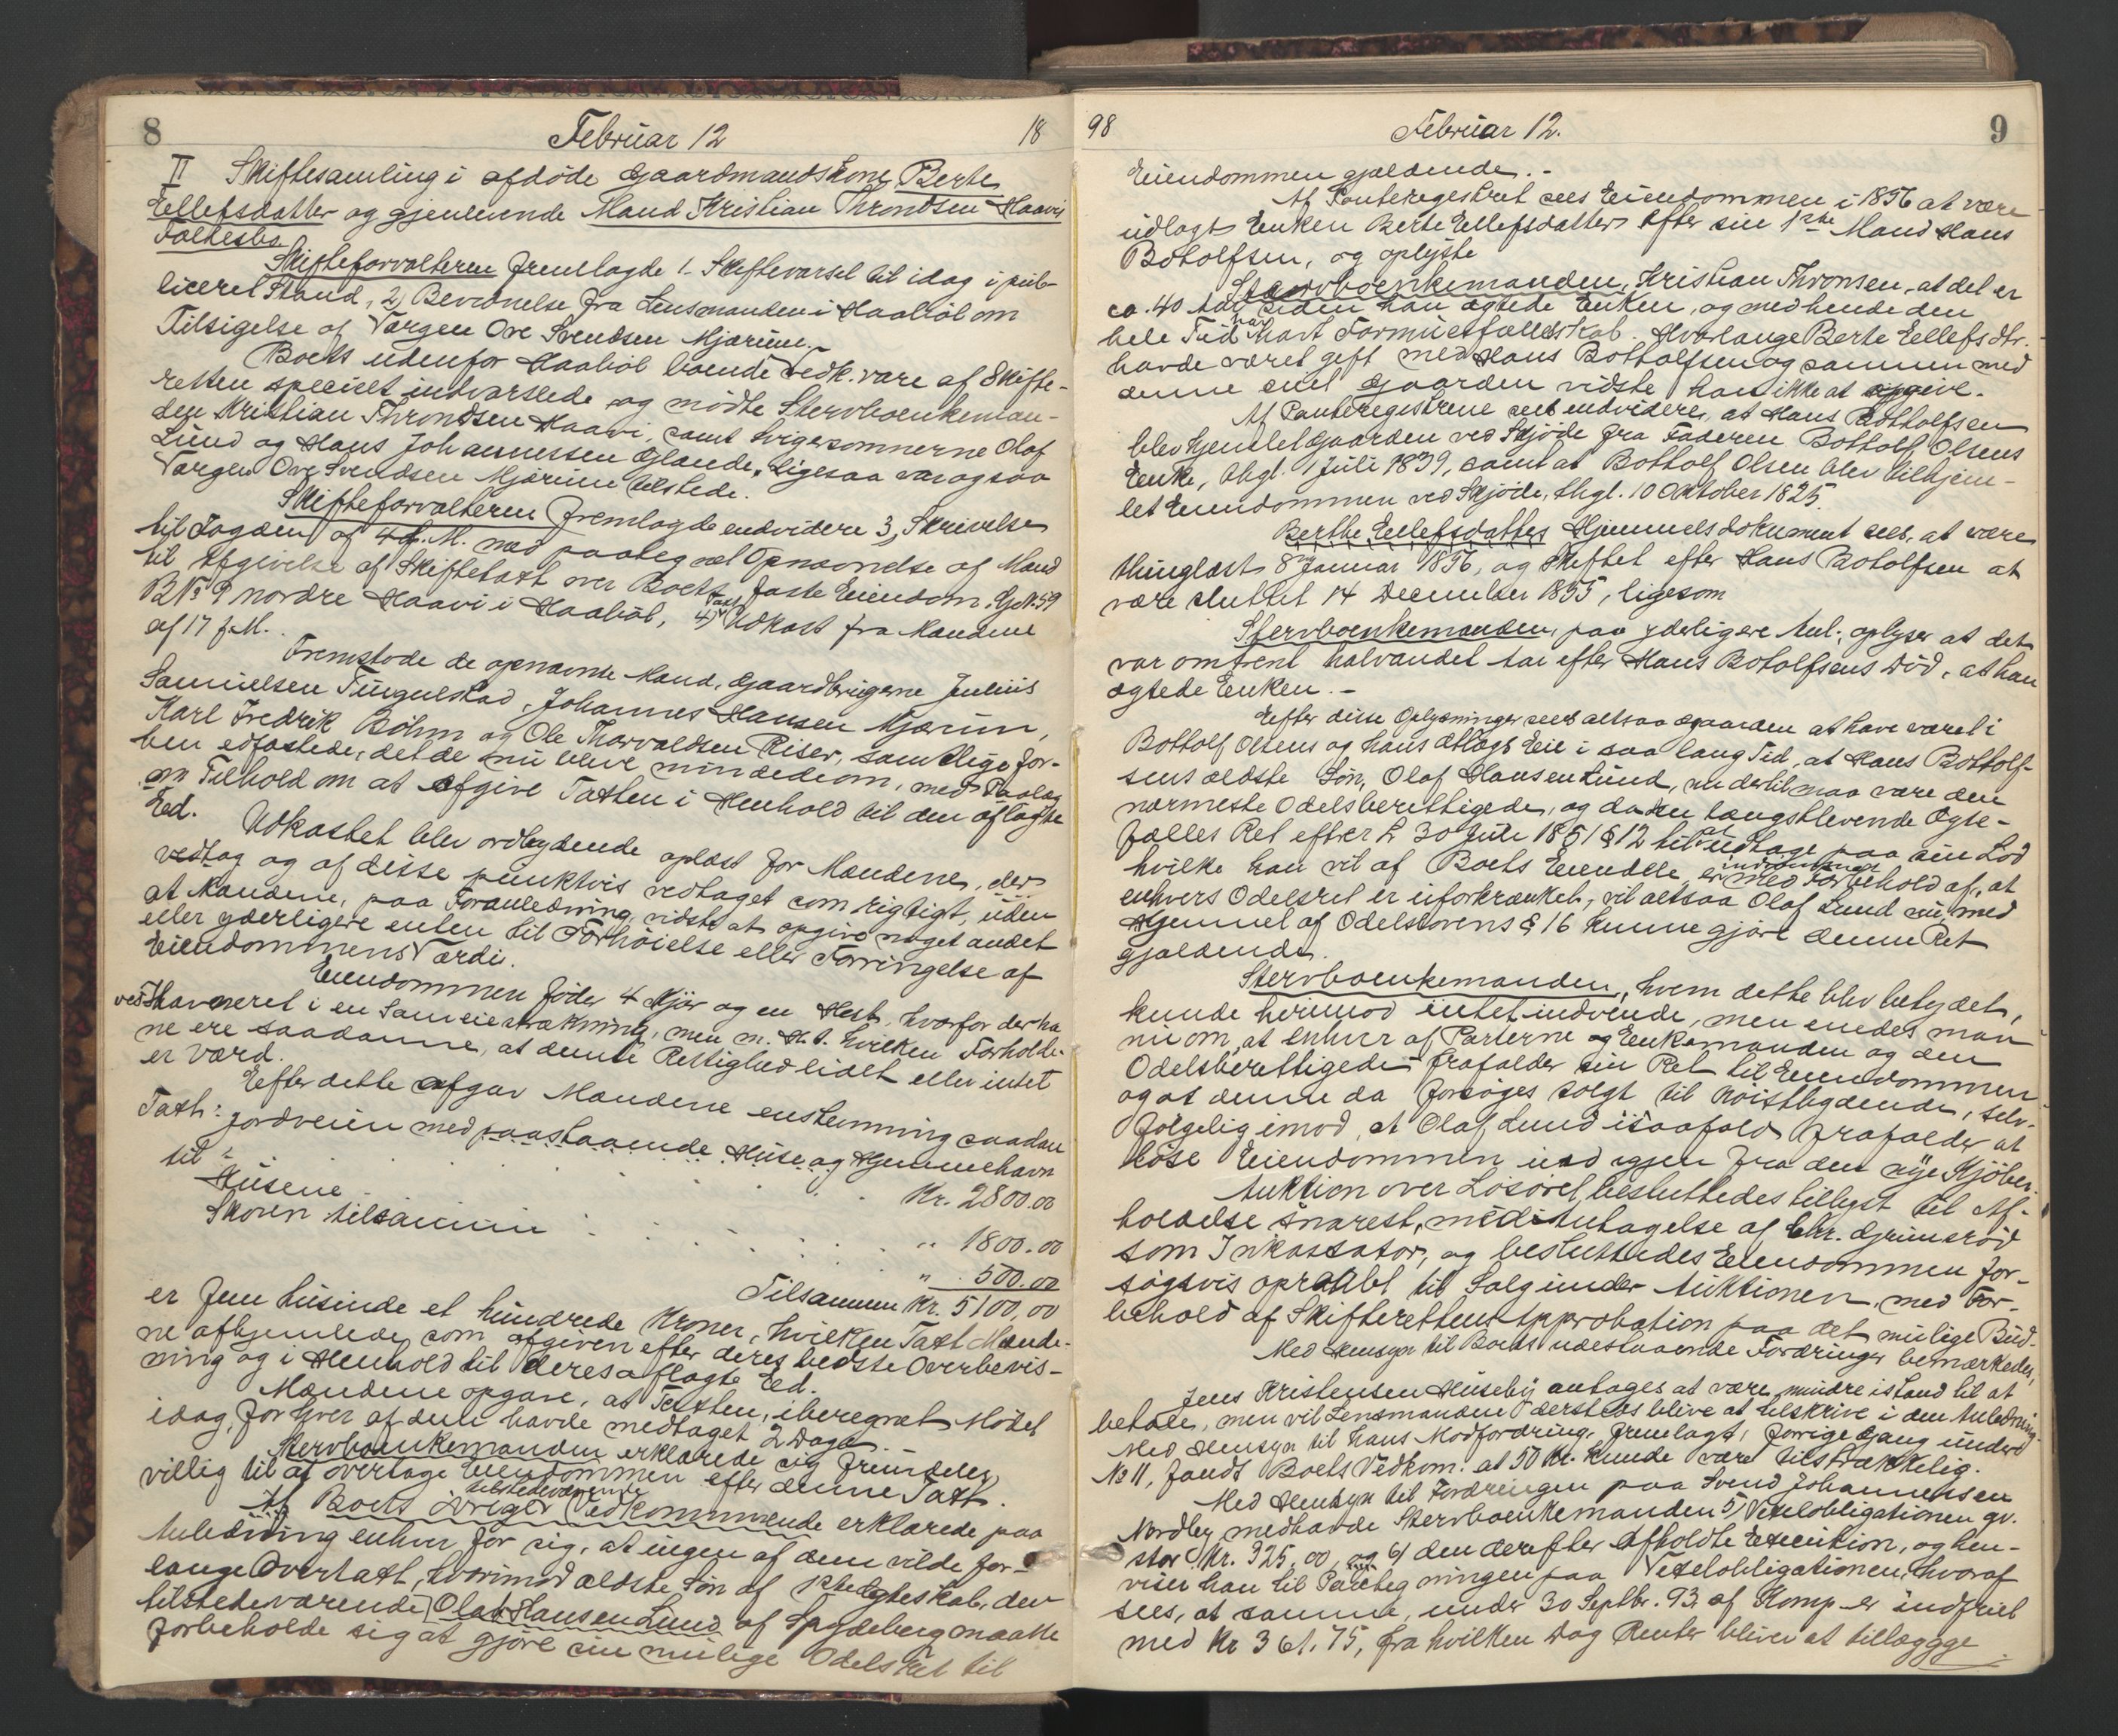 8
Februar 12
18
II Skiftesamling i afdøde Gaardmandskone Berte
Ellefsdatter og gjenlevende Mand Kristian Throndsen Haavis
Fællesbo
Skifteforvalteren fremlagde 1. Skiftevarsel til idag i pub-
liceret Stand, 2, Bevidnelse fra Lensmanden i Haabøl om
Tilsigelse af Værgen Ove Svendsen Mjærum.
Boets udenfor Haabøl boende Vedk. vare af Skifte-
retten specielt indvarslede og mødte Stervboenkeman-
den Kristian Throndsen Haavi, samt Svigersønnerne Olaf
Lund og Hans Johannessen Glande. Ligesaa var ogsaa
Værgen Ove Svendsen Mjærum tilstede.
Skifteforvalteren fremlagde endvidere 3, Skrivelse
til Fogden af 4 f. M. med paategnet Opnævnelse af Mænd
til Afgivelse af Skiftetaxt over Boets faste Eiendom, G.No. 59
B No 9 nordre Haavi i Haabøl, 4, Taxt Udkast fra Mændene
af 17 f. M.
Fremstode de opnævnte Mænd, Gaardbrugerne Julius
Samuelsen Tingulstad, Johannes Hansen Mjærum,
Karl Fredrik Böhm og Ole Thorvaldsen Riser, samtlige for-
hen edfæstede, det de nu bleve mindede om, med Paalæg
om Tilhold om at afgive Taxten i Henhold til den aflagte
Ed.
Udkastet blev ordlydende oplæst for Mændene, der
vedtog og af disse punktvis vedtaget som rigtigt, uden
at Mændene, paa Foranledning, vidste at opgive noget andet
eller yderligere enten til Forhøielse eller Forringelse af
Eiendommens Værdi.
Eiendommen føder 4 Kjør og en Hest, hvorfor der ha-
ves Havneret i en Sameiestrækning, men m. H. t. hvilken Forholde-
ne ere saadanne, at denne Rettighed lidet eller intet
er værd.
Efter dette afgav Mændene enstemmig saadan
Taxt: Jordveien med paastaaende Huse og Hjemmehavn
til
Kr. 2800.00
Husene
" 1800.00
Skoven tilsammen
" 500.00
Tilsammen Kr. 5100,00
er fem tusinde et hundrede Kroner, hvilken Taxt Mænde-
ne afhjemlede som afgiven efter deres bedste Overbevis-
ning og i Henhold til deres aflagte Ed.
Mændene opgave, at Taxten, iberegnet Mødet
idag, for hver af dem havde medtaget 2 Dage.
Stervboenkemanden erklærede sig fremdeles
villig til at overtage Eiendommen efter denne Taxt.
Af Boets øvrige tilstedeværende Vedkommende erklærede paa
Anledning enhver for sig, at ingen af dem vilde for-
lange Overtaxt, hvorimod ældste Søn af 1ste Ægteskab, den
tilstedeværende Olaf Hansen Lund af Spydeberg maatte
forbeholde sig at gjøre sin mulige Odelsret til
98
Februar 12.
9
Eiendommen gjældende.
Af Panteregistret sees Eiendommen i 1856 at være
udlagt Enken Berte Ellefsdatter efter sin 1ste Mand Hans
Botolfsen, og oplyste
Stervboenkemanden, Kristian Thronsen, at det er
ca. 40 Aar siden han ægtede Enken, og med hende den
hele Tid har havt Formuesfællesskab. Hvorlænge Berte Ellefsdtr.
havde været gift med Hans Bottolfsen og sammen med
denne eiet Gaarden vidste han ikke at opgive.
Af Panteregistrene sees endvidere, at Hans Bottolfsen
blev hjemlet Gaarden ved Skjøde fra Faderen Bottolf Olsens
Enke, thgl. 1 Juli 1839, samt at Bottolf Olsen blev tilhjem-
let Eiendommen ved Skjøde, thgl. 10 Oktober 1825.
Berthe Ellefsdatters Hjemmelsdokument sees, at være
thinglæst 8 Januar 1856, og Skiftet efter Hans Botolfsen at
være sluttet 14 December 1855, ligesom
Stervboenkemanden paa yderligere Anl. oplyser at det
var omtrent halvandet Aar efter Hans Botolfsens Død, at han
ægtede Enken.
Efter disse Oplysninger sees altsaa Gaarden at have været i
Bottolf Olsens og hans Ætlægs Eie i saa lang Tid, at Hans Bottolf-
sens ældste Søn, Olaf Hansen Lund, nu dertil maa være den
nærmeste Odelsberettigede, og da den længstlevende Ægte-
fælles Ret efter L 30 Juli 1851 § 12 til at udtage paa sin Lod
hvilke han vil af Boets Eiendele, er indrømmet med Forbehold af, at
enhvers Odelsret er uforkrænket, vil altsaa Olaf Lund nu, med
Hjemmel af Odelslovens § 16 kunne gjøre denne Ret
gjældende.
Stervboenkemanden, hvem dette blev betydet,
kunde herimod intet indvende, men enedes man
nu om, at enhver af Parterne og Enkemanden og den
Odelsberettigede frafalder sin Ret til Eiendommen
og at denne da forsøges solgt til Høistbydende, selv-
følgelig imod, at Olaf Lund isaafald frafalder at
løse Eiendommen ind igjen fra den nye Kjøber.
Auktion over Løsøret besluttedes tillyst til Af-
holdelse snarest, med Antagelse af Chr. Grimsrød
som Inkassator, og besluttedes Eiendommen for-
søgsvis opraabt til Salg under Auktionen, med For-
behold af Skifterettens Approbation paa det mulige Bud.
Med Hensyn til Boets udestaaende Fordringer bemærkedes,
Jens Kristensen Huseby antages at være mindre istand til at
betale, men vil Lensmanden dersteds blive at tilskrive i den Anledning.
Med Hensyn til hans Modfordring, fremlagt, forrige Gang under
No 11, fandt Boets Vedkom. at 50 Kr. kunde være tilstrækkelig.
Med Hensyn til Fordringen paa Svend Johannensen
Nordby medhavde Stervboenkemanden 5, Vexelobligationen gr.
stor Kr. 325,00, og 6, den derefter afholdte Execution, og hen-
viser han til Paategningen paa Vexelobligationen, hvoraf
sees, at samme, under 30 Septbr. 93, af Komp. er indfriet
med Kr 361.75, fra hvilken Dag Renter bliver at tillægge